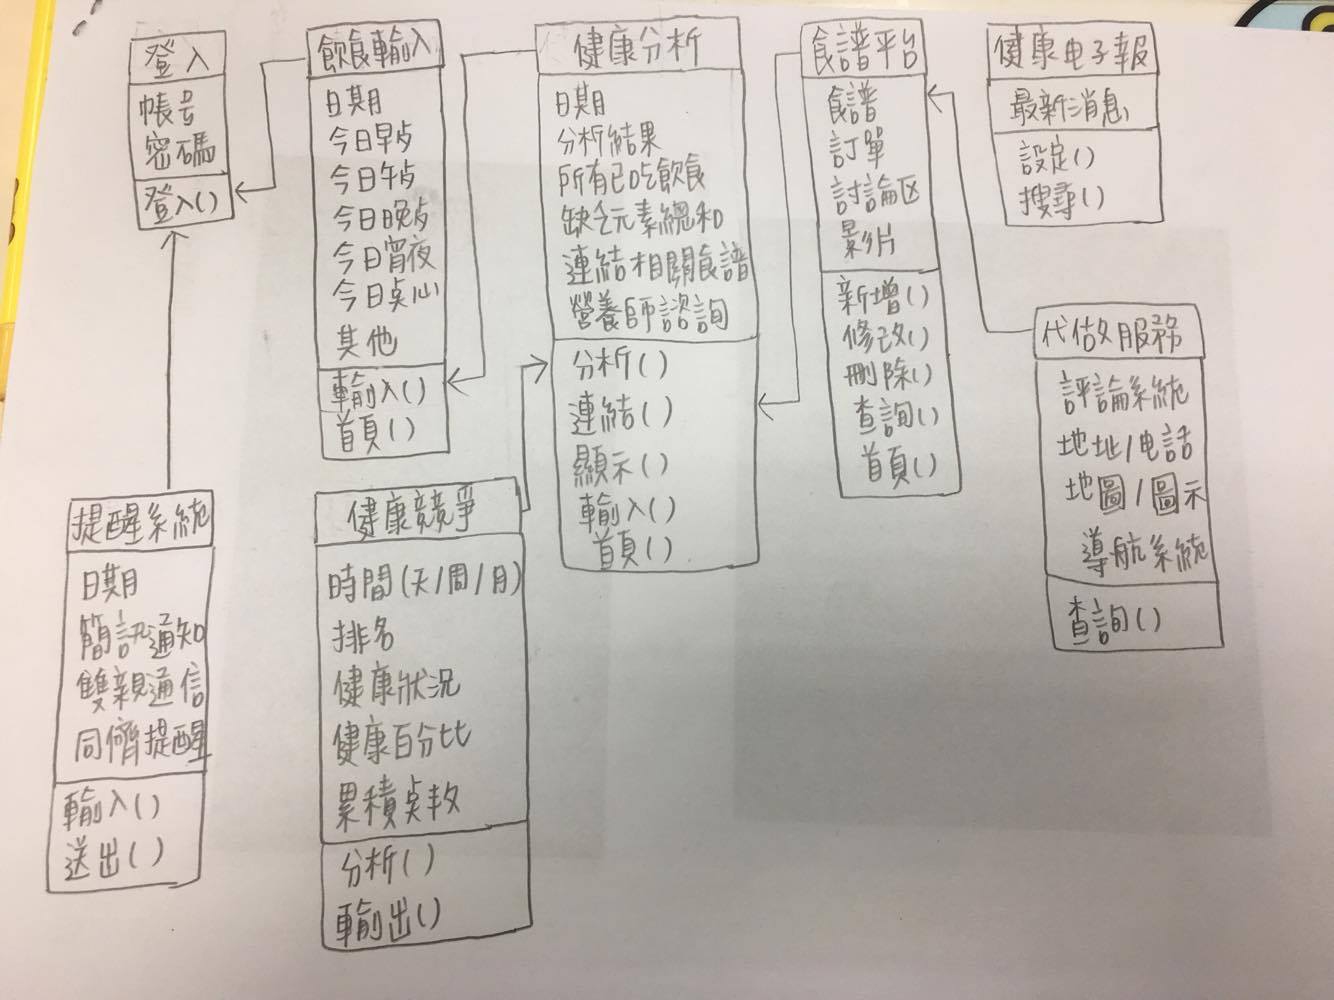 登入
帳号
密碼
登入()
飲食輸入
日期
今日早点
今日午点
今日晚点
今日宵夜
今日点心
其他
輸入()
首頁()
健康分析
日期
分析結果
所有已吃飲食
缺乏元素總和
連結相關食譜
營養師諮詢
分析()
連結()
顯示()
輸入()
首頁()
食譜平台
食譜
訂單
討論区
影片
新增()
修改()
刪除()
查詢()
首頁()
健康电子報
最新消息
設定()
搜尋()
代做服務
評論系統
地址/电話
地圖/圖示
導航系統
查詢()
提醒系統
日期
簡訊通知
雙親通信
同儕提醒
輸入()
送出()
健康競爭
時間(天/周/月)
排名
健康狀況
健康百分比
累積点数
分析()
輸出()